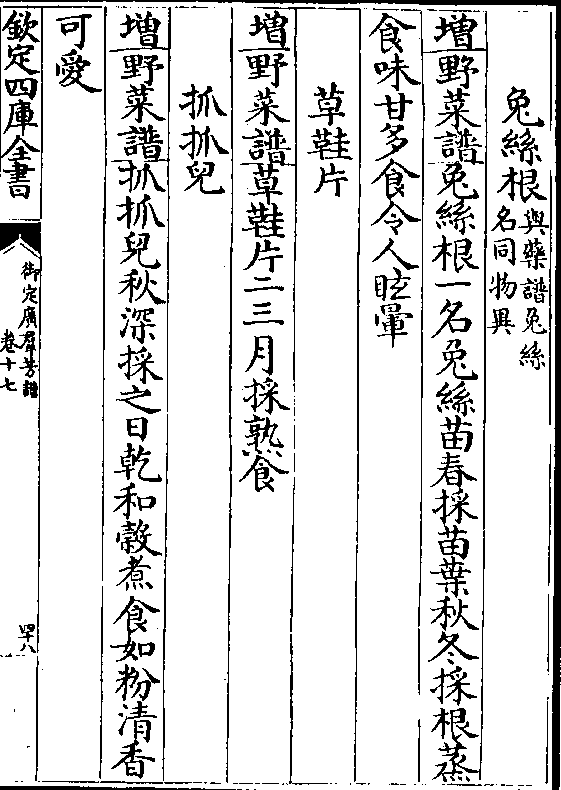 兔絲根與藥譜兔絲名同物異
增野菜譜兔絲根一名兔絲苗春採苗葉秋冬採根蒸
食味甘多食令人眩暈
草鞋片
增野菜譜草鞋片二三月採熟食
抓抓兒
增野菜譜抓抓兒秋深採之日乾和穀煮食如粉清香
可愛
欽定四庫全書
御定廣羣芳譜
卷十七
四十八